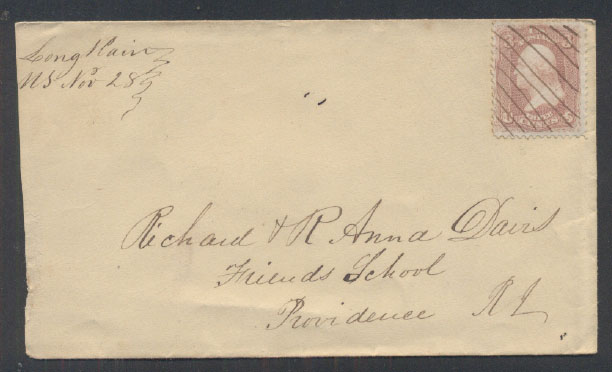 Long Plain
Ms Nov 28
Richard & R Anna Davis
Friends School
Providence R I